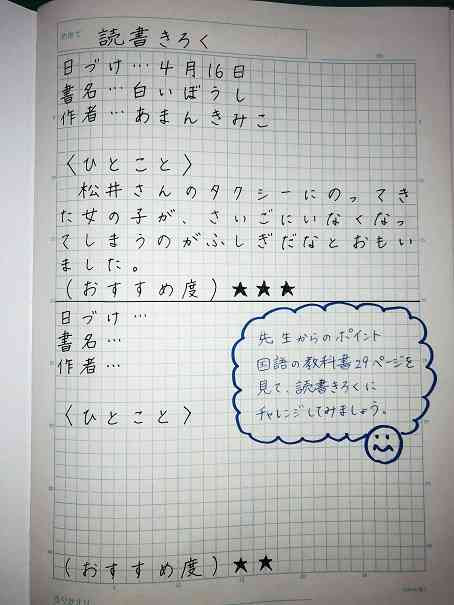 読書きろく
日づけ…4月16日
書名…白いぼうし
作者…あまんきみこ
〈ひとこと〉
松井さんのタクシーにのってき
た女の子が、さいごにいなくなっ
てしまうのがふしぎだなとおもい
ました。
(おすすめ度)★★★
日づけ…
書名…
作者…
〈ひとこと〉
先生からのポイント
国語の教科書29ページを
見て、読書きろくに
チャレンジしてみましょう。
(おすすめ度)★★